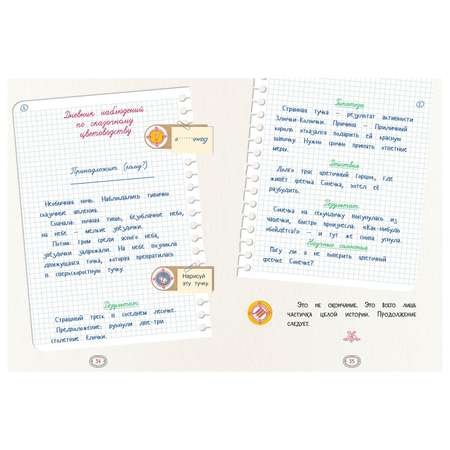 Дневник наблюдений
по сказочному
цветоводству
Принадлежит (кому?)
Необычная ночь. Наблюдались типичны
сказочные явления.
Сначала: ночная тишь, безоблачное небо,
на небе — мелкие звёздочки.
Потом: гром среди ясного неба,
звёздочки задрожали. На небе возникла
движущаяся точка, которая превратилась
в сверхскоростную тучку.
Нарисуй
эту тучку.
Результат:
Страшный треск в соседнем лесочке.
Предположение: рухнули две-три
столетние ёлочки.
34
Гипотеза
Странная тучка — результат активности
Злючки-Колючки. Причина — Приличный
король отказался подарить ей красную
шапочку. Нужно срочно принять ответные
меры.
Действия
Долго тряс цветочный горшок, где
живёт феечка Синечка, хотел её
разбудить.
Результат:
Синечка на секундочку высунулась из
чашечки, быстро произнесла: «Как-нибудь
обойдётся!» — и тут же снова уснула.
Научные сомнения
Могу ли я доверять цветочной
феечке Синечке?
Это не окончание. Это всего лишь
частичка целой истории. Продолжение
следует.
35